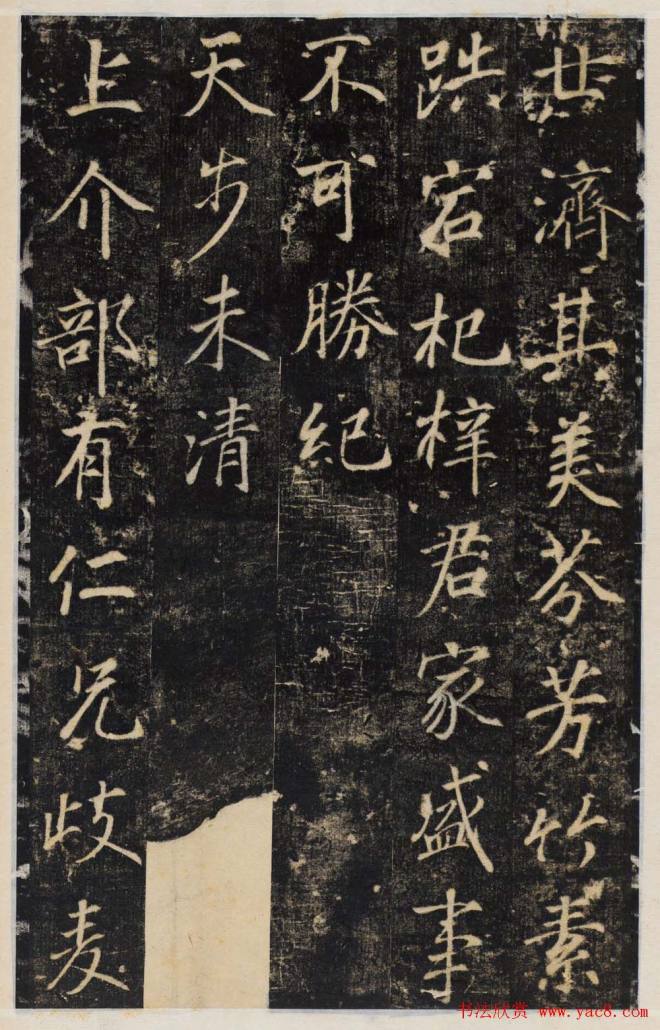 世濟其美芬芳竹素
跌宕杞梓君家盛事
不可勝紀
天步未清
上介部有仁兄歧麦
书法欣赏 www.yac8.com